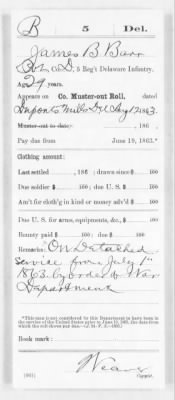 B 5 Del.
James B Barr
Co. D, 5 Reg't Delaware Infantry.
Age 29 years.
Appears on Co. Muster-out Roll, dated
Duponts Mills Del Aug 12 1863.
Muster-out to date , 186 .
Pay due from June 19, 1863.*
Clothing account:
Last settled , 186 ; drawn since $ 100
Due soldier $ 100; due U. S. $ 100
Am't for cloth'g in kind or money adv'd $ 100
Due U. S. for arms, equipments, &c., $ 100
Bounty paid $ 100; due $ 100
Remarks: "On Detached
service from July 1st
1863 by order of War
Department
*This man is not considered by this Department to have been in
the service of the United States prior to June 19, 1863, the date from
which the roll shows pay due.
Book mark:
Weaver
(361) Copyist.